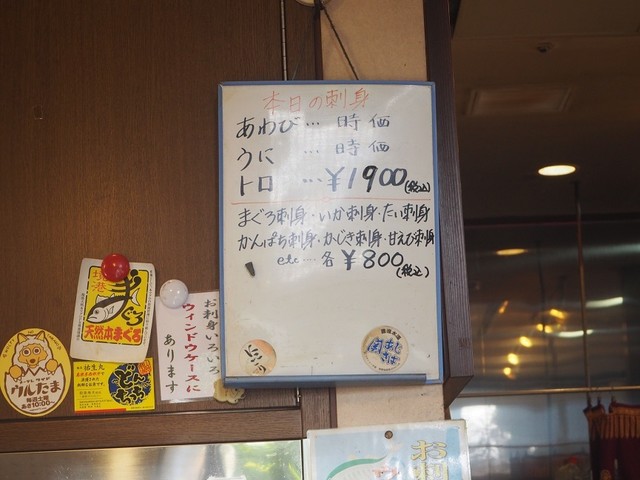 本日の刺身
あわび… 時価
うに … 時価
トロ …¥1900(税込)
まぐろ刺身・いか刺身・たい刺身
かんぱち刺身・かじき刺身・甘えび刺身
etc…各¥800(税込)
関あじ
さば
港
まぐろ
天然本まぐろ
お刺身いろいろ
ウィンドウケースに
あります
りんたま
毎週土曜
あさ10:00〜
お刺